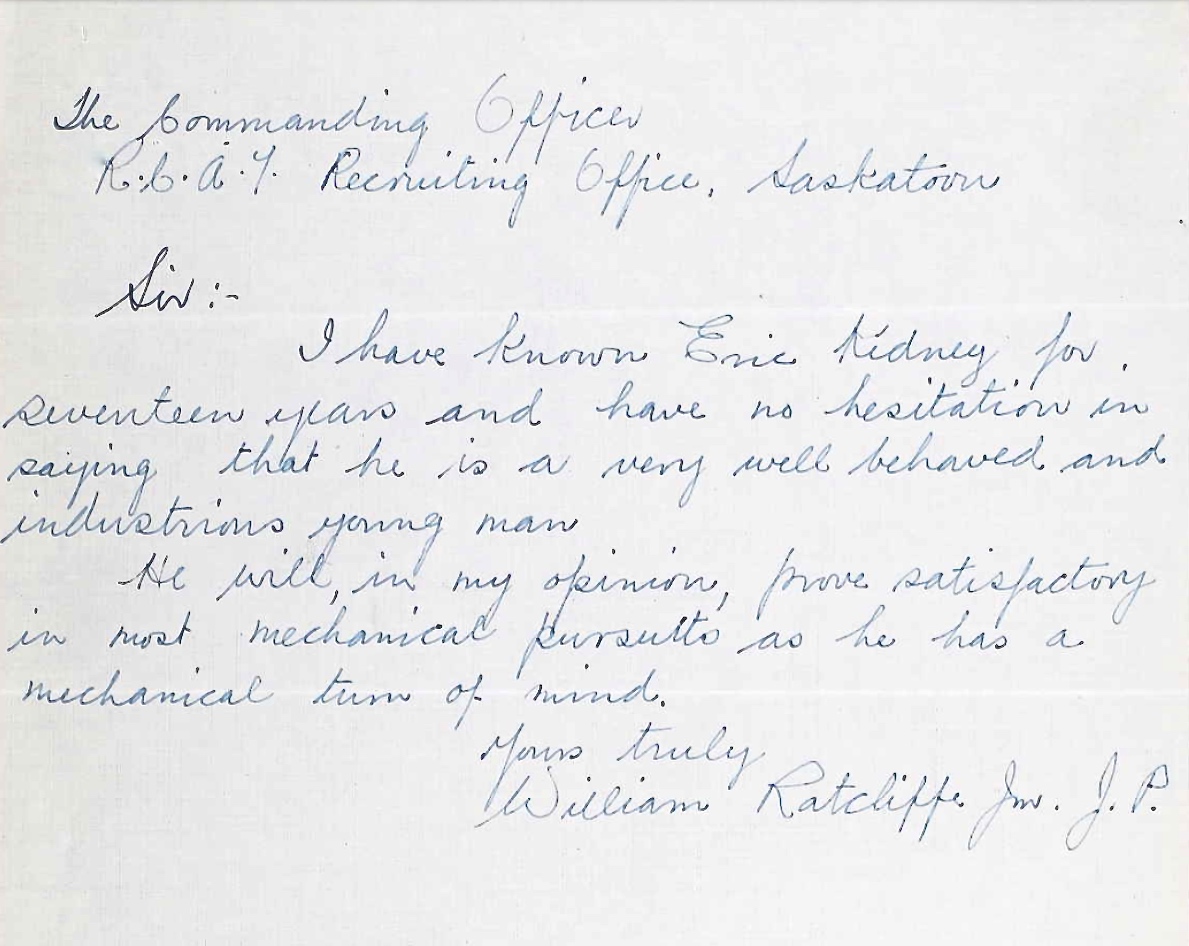 The Commanding Officer
R.C.A.F. Recruiting Office, Saskatoon
Sir :-
I have known Eric Kidney for
seventeen years and have no hesitation in
saying that he is a very well behaved and
industrious young man
He will, in my opinion, prove satisfactory
in most mechanical pursuits as he has a
mechanical turn of mind.
Yours truly
William Ratcliffe Jnr. J. P.